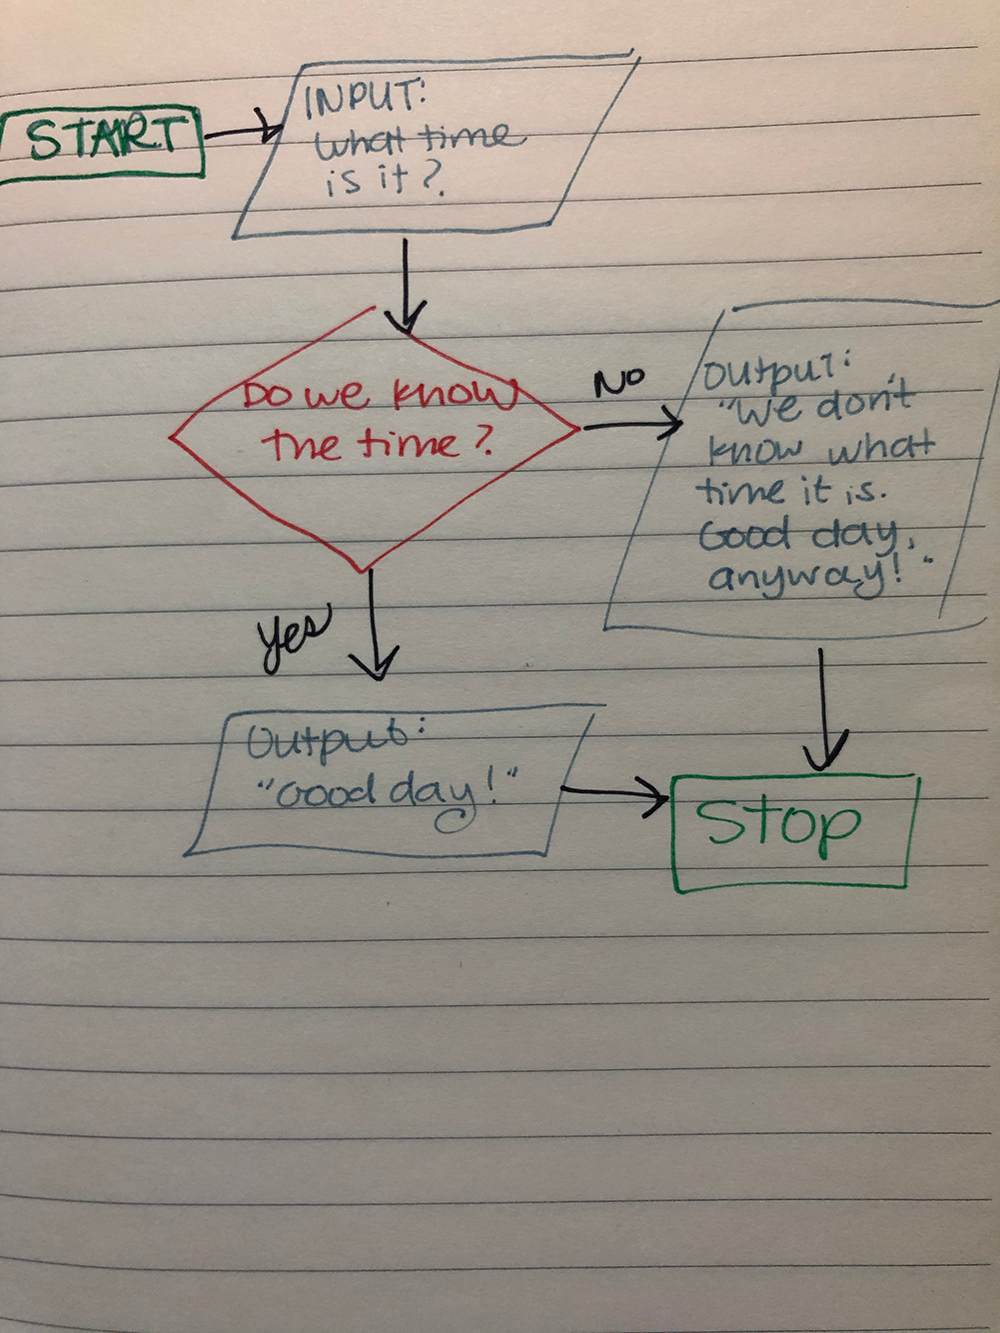 START
INPUT:
what time
is it?
Do we know
the time?
No
Output:
"We don't
know what
time it is.
Good day,
anyway!"
Yes
Output:
"Good day!"
Stop